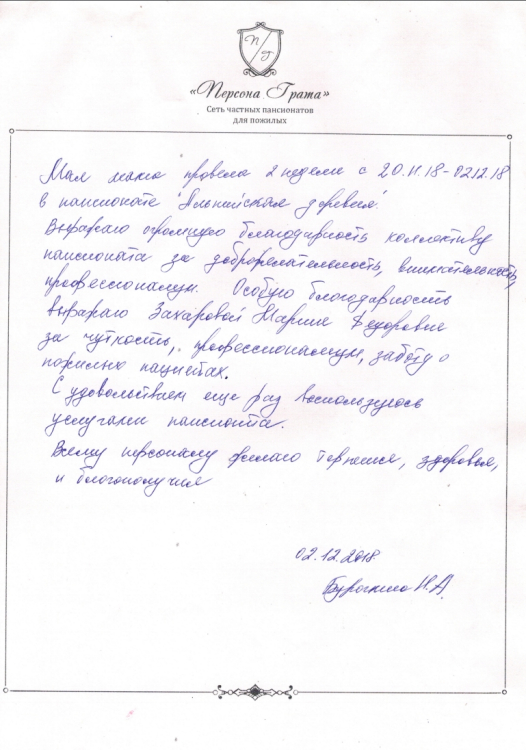 П/Г
«Персона Грата»
Сеть частных пансионатов
для пожилых
Моя мама провела 2 недели с 20.11.18-02.12.18
в пансионате "Альпийская деревня".
Выражаю огромную благодарность коллективу
пансионата за доброжелательность, внимательность,
профессионализм. Особую благодарность
выражаю Захаровой Марине Федоровне
за чуткость, профессионализм, заботу о
пожилых пациентах.
С удовольствием еще раз воспользуюсь
услугами пансионта.
Всему персоналу желаю терпения, здоровья,
и благополучия
02.12.2018
Н.А.